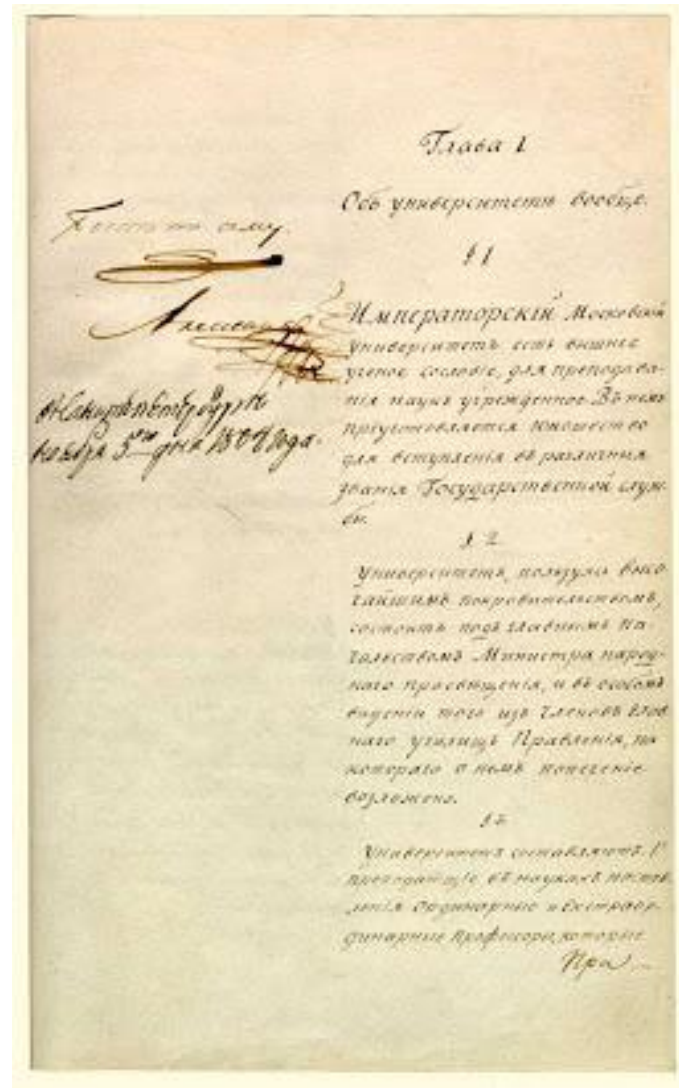 Глава 1
Объ университетѣ вообще.
§ 1
Быть по сему.
Александръ
въ Санктпѣтербургѣ
ноября 5го дня 1804 года.
Императорскій Московскій
университетъ есть вышнее
ученое сословіе, для преподава-
нія наукъ учрежденное. Въ немъ
пріуготовляется юношество
для вступленія въ различныя
званія Государственной служ-
бы.
§ 2
Университетъ, пользуясь высо-
чайшимъ покровительствомъ,
состоитъ подъ главнымъ На-
чальствомъ Министра народ-
наго просвѣщенія, и въ особомъ
вѣденіи того изъ Членовъ Глав-
наго училищъ Правленія, на
котораго о немъ попеченіе
возложено.
§ 3
Университетъ составляютъ. 1е
преподающіе въ наукахъ настав-
ленія Ординарные и Екстраор-
динарные Профессоры, которые
Пра